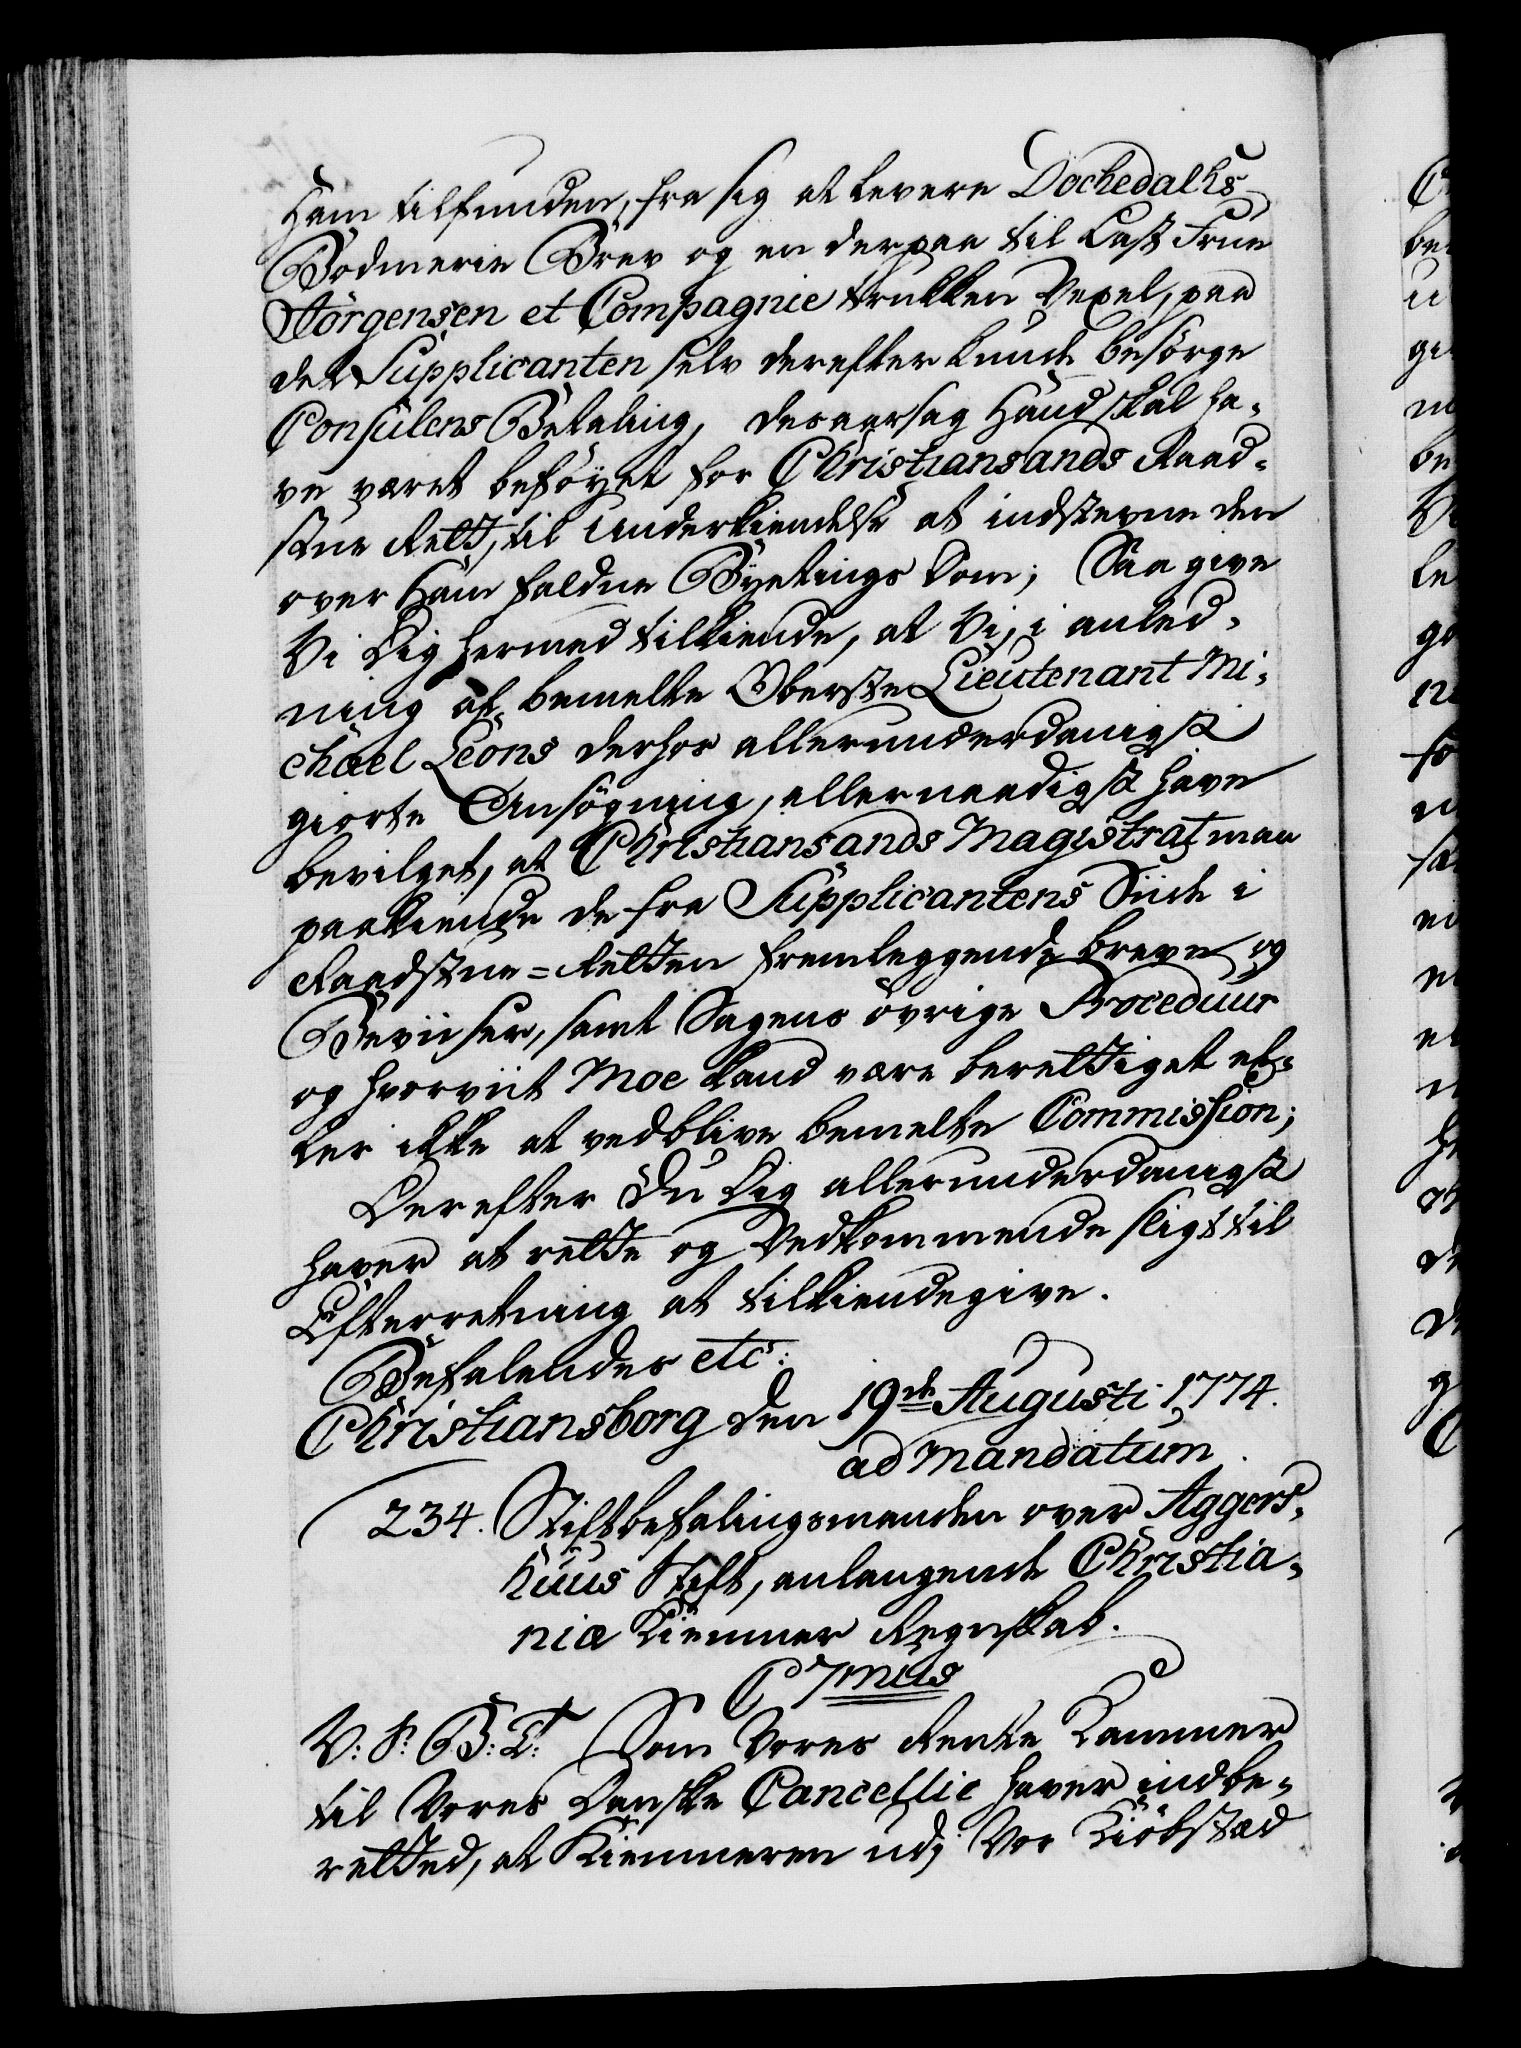 Ham tilfunden, fra sig at levere Dockedahls
Bodmerie Brev og en derpaa til Last Frue
Jörgensen et Compagnie trukken Vexel, paa
det Supplicanten selv derefter kunde besörge
Consulens Betaling, desaarsag Hand skal ha-
ve været beföyet for Christiansands Raad-
stue Rett, til Underkiendelse at indstevne den
over Ham faldne Byetings Dom; Saa give
Vi Dig hermed tilkiende, at Vi, i anled-
ning af bemelte Oberste Lieutenant Mi-
chael Leons derhos allerunderdanigst
giorte Ansögning, allernaadigst have
bevilget, at Christiansands Magistrat maa
paakiende de fra Supplicantens Siide i
Raadstue=Retten fremleggende breve og
Beviiser, samt Sagens övrige Proceduur
og hvorviit Moe kand være berettiget el-
ler ikke at vedblive bemelte Commission;
Derefter Du Dig allerunderdanigst
haver at rette og Vedkommende sligt til
Efterretning at tilkiendegive.
Befalendes etc:
Christiansborg den 19de Augusti 1774.
ad Mandatum.
234. Stiftbefalingsmanden over Aggers-
huus Stift, anlangende Christia-
niæ Kiemner Regnskab.
C 7mus
V: S: G: T: Som Vores Rente Kammer
til Vores Danske Cancellie haver indbe-
retted, at Kiemneren udj Vor Kiöbstæd